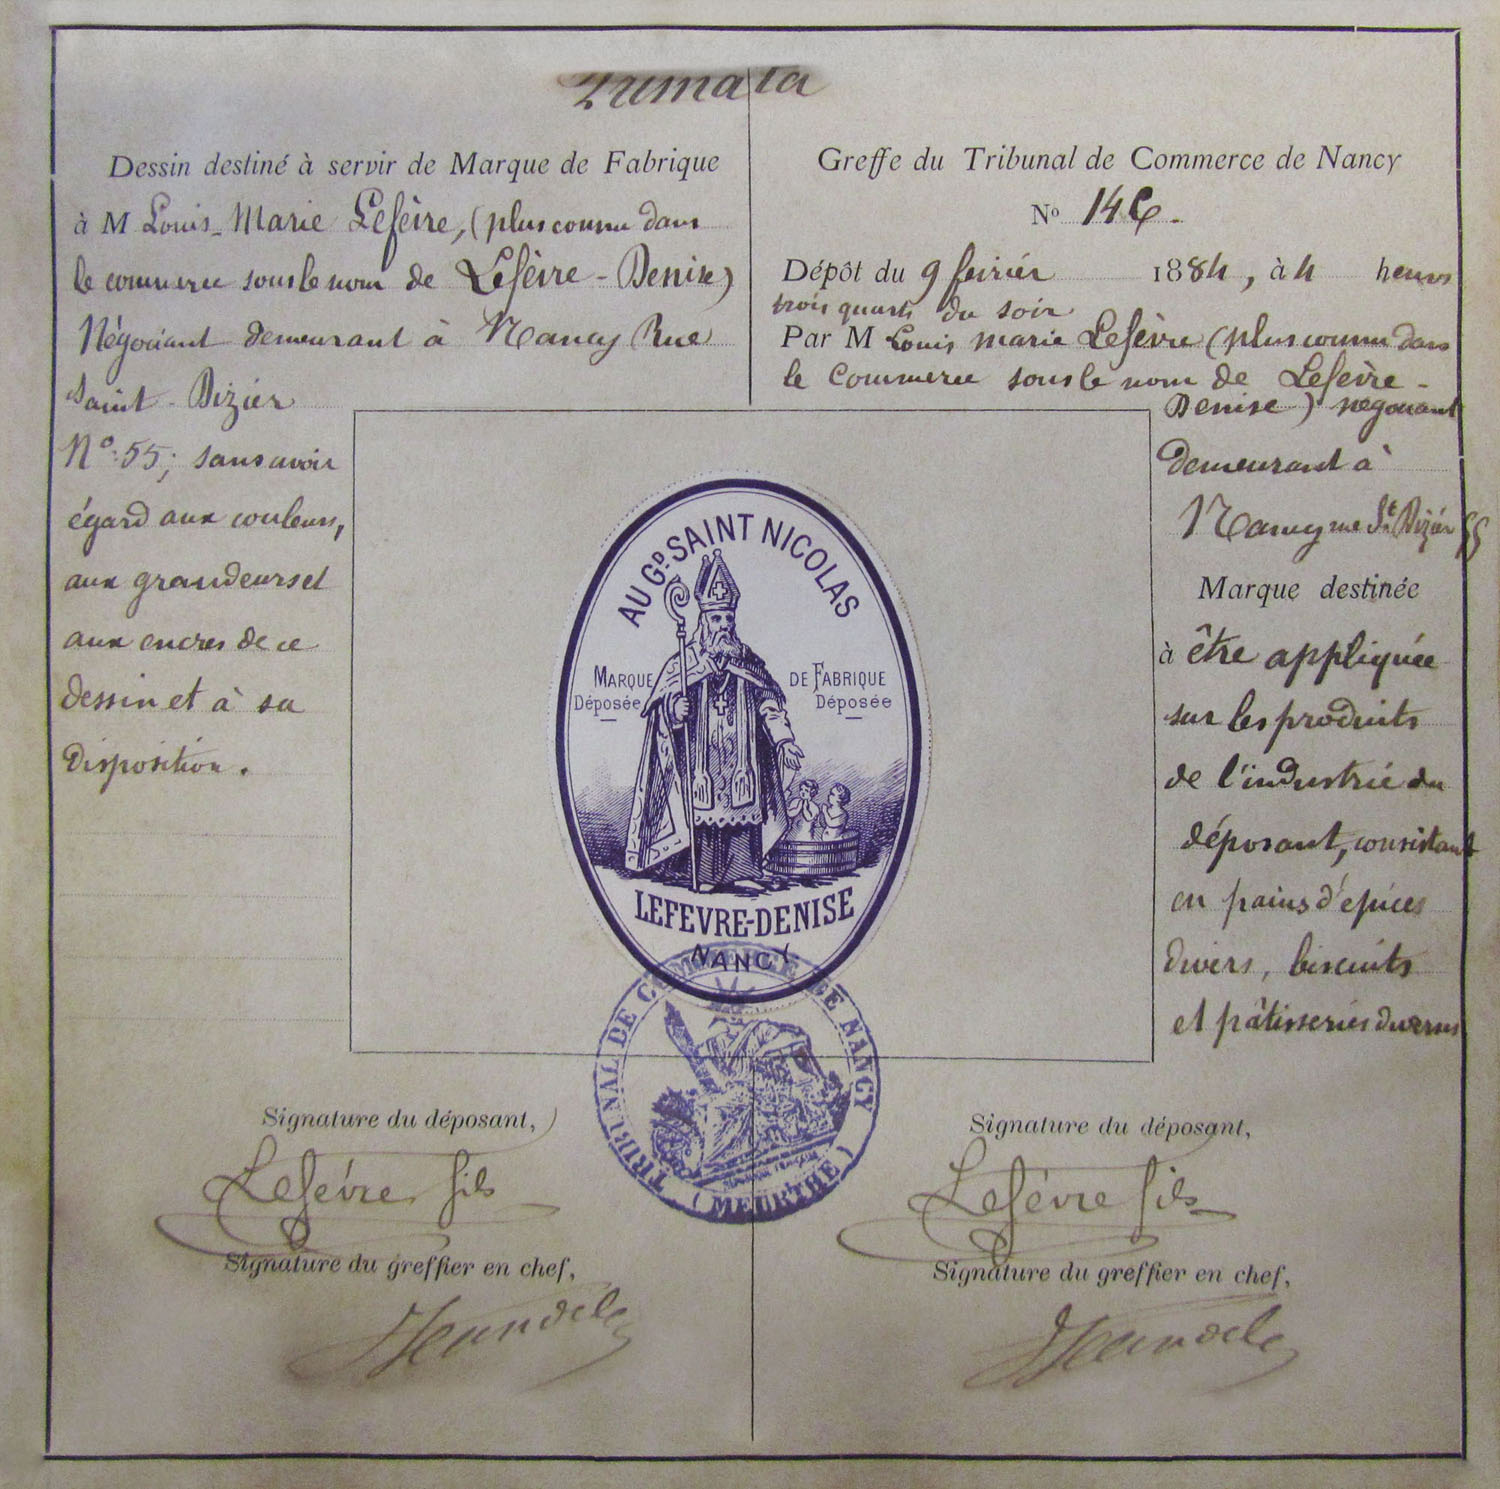 Dessin destiné à servir de Marque de Fabrique
à M Louis-Marie Lefèvre, (plus connu dans
le commerce sous le nom de Lefèvre-Denise)
Négociant demeurant à Nancy Rue
Saint-Dizier
N° 55; sans avoir
égard aux couleurs,
aux grandeurs et
aux encres de ce
dessin et à sa
disposition.
Greffe du Tribunal de Commerce de Nancy
N°
Dépôt du 9 février 1884, à 4 heures
trois quarts du soir
Par M Louis Marie Lefèvre (plus connu dans
le Commerce sous le nom de Lefèvre-
Denise) négociant
demeurant à
Nancy rue St Dizier 55
Marque destinée
à être appliquée
sur les produits
de l'industrie du
déposant, consistant
en pains d'épices
divers, biscuits
et pâtisseries diverses
AU GD SAINT NICOLAS
MARQUE DE FABRIQUE
Déposée Déposée
LEFEVRE-DENISE
NANCY
TRIBUNAL DE COMMERCE DE NANCY
(MEURTHE)
Signature du déposant,
Lefèvre fils
Signature du greffier en chef,
Signature du déposant,
Lefèvre fils
Signature du greffier en chef,